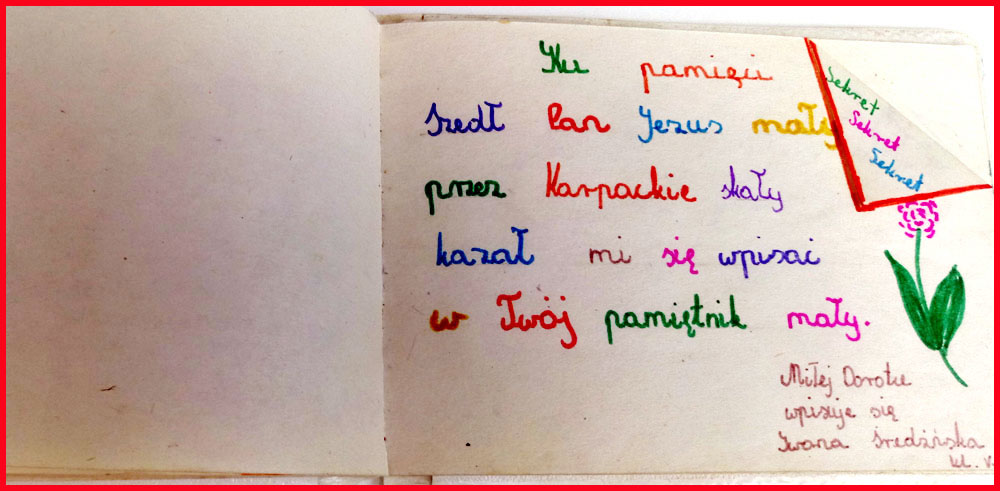 Ku pamięci
Szedł Pan Jezus mały
przez Karpackie skały
kazał mi się wpisać
w Twój pamiętnik mały.
Sekret
Sekret
Sekret
Miłej Dorotce
wpisuje się
Iwona Średzińska
kl. V